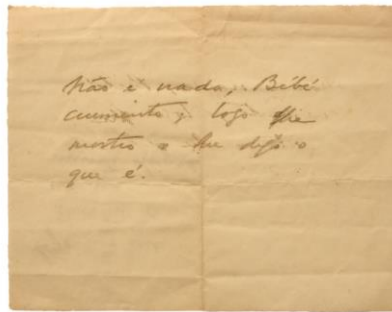 Não é nada, Bébé
ciumento; logo lhe
mostro e lhe digo o
que é.